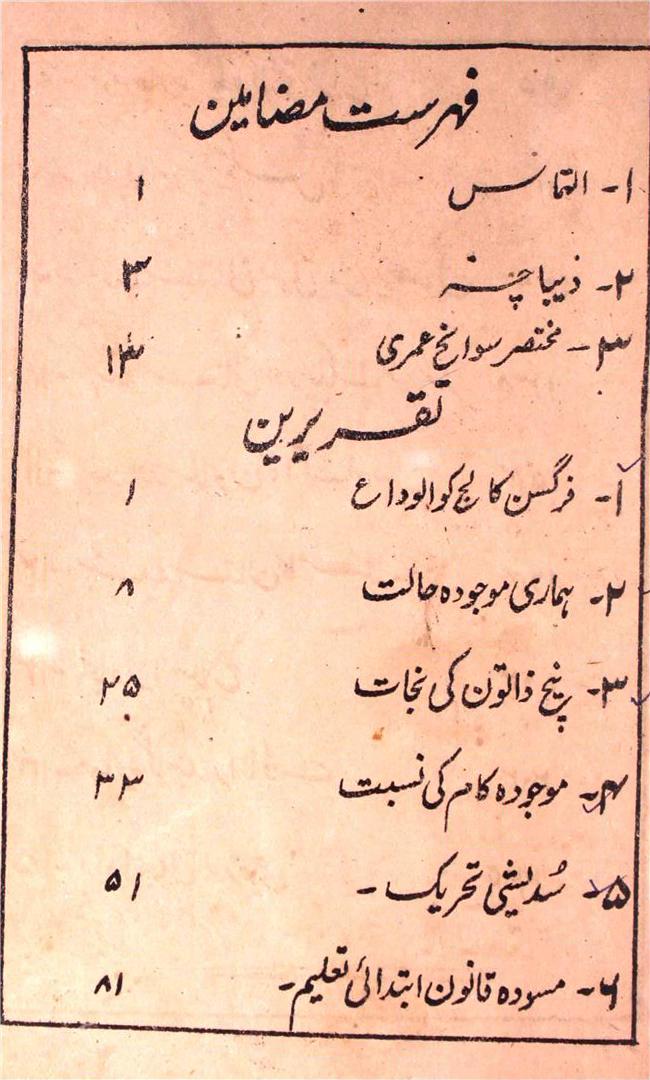 فہرست مضامین
۱- التماس ۱
۲- دیباچہ ۳
۳- مختصر سوانح عمری ۱۳
تقریرین
۱- فرگسن کالج کو الوداع ۱
۲- ہماری موجودہ حالت ۸
۳- پنچ ذاتون کی نجات ۲۵
۴- موجودہ کام کی نسبت ۳۳
۵- سُدیشی تحریک - ۵۱
۶- مسودہ قانون ابتدائی تعلیم - ۸۱